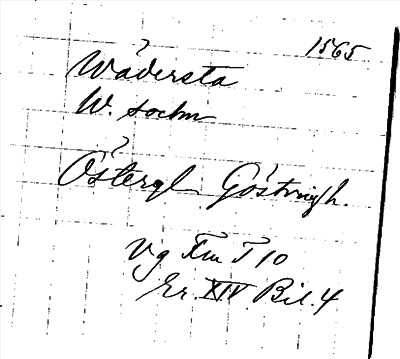 1565
Wäversta
W. sochn
Östergl Göstringh.
Vg Fm T 10
Er. XIV. Bil. 4